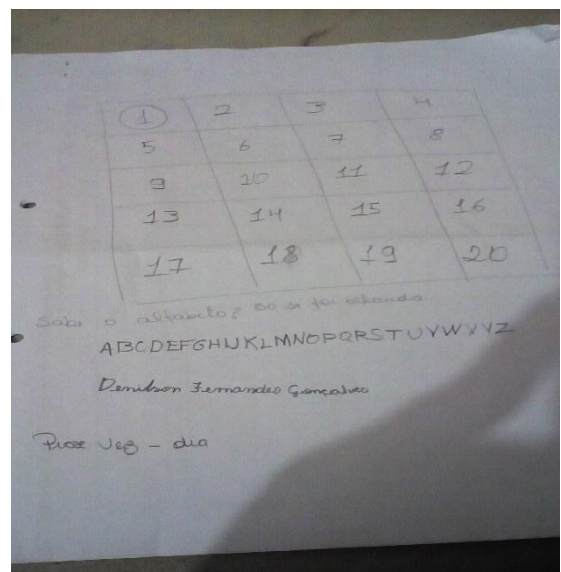 1 2 3 4
5 6 7 8
9 10 11 12
13 14 15 16
17 18 19 20
Sabe o alfabeto? so se for olhando
ABCDEFGHIJKLMNOPQRSTUVWXYZ
Denilson Fernandes Gonçalves
vez - dia